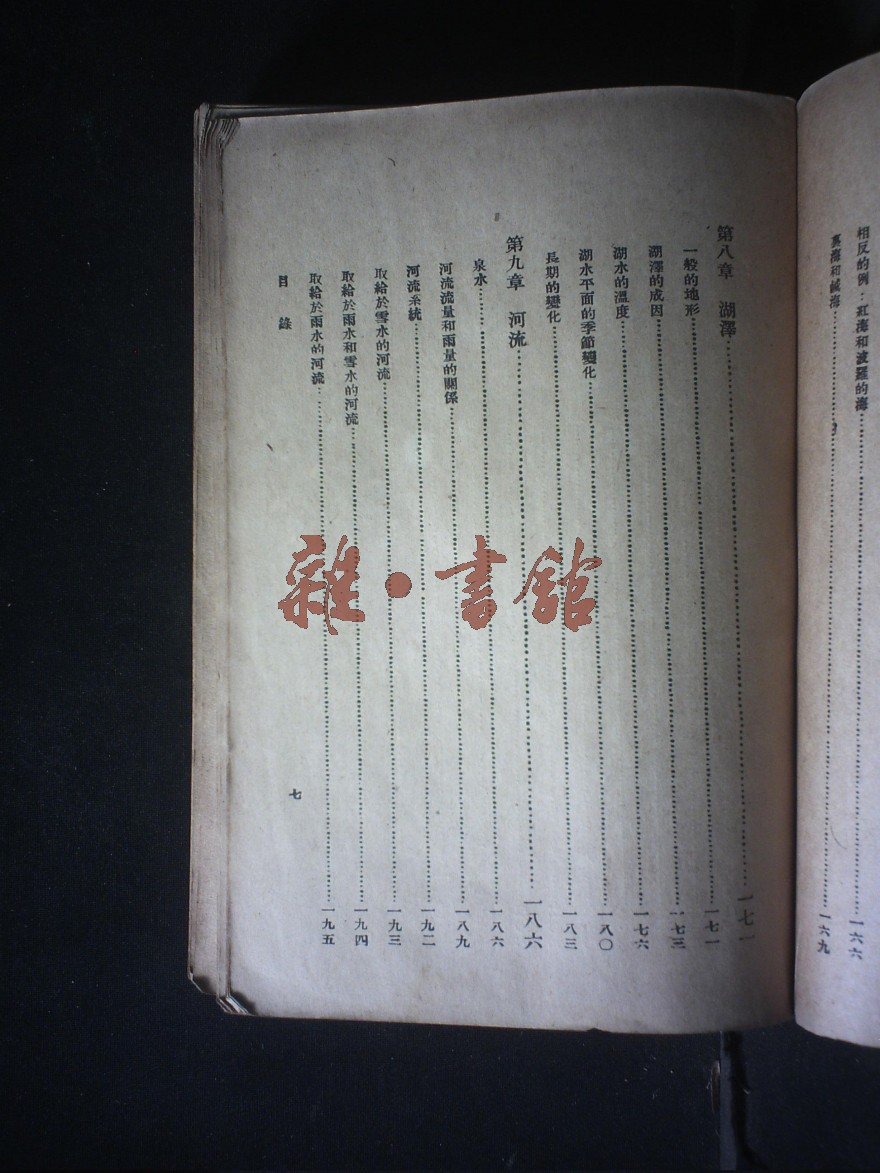 相反的例：紅海和波羅的海……一六六
裏海和鹹海……一六九
第八章　湖澤……一七一
一般的地形……一七一
湖澤的成因……一七三
湖水的溫度……一七六
湖水平面的季節變化……一八〇
長期的變化……一八三
第九章　河流……一八六
泉水……一八六
河流流量和雨量的關係……一八九
河流系統……一九二
取給於雪水的河流……一九三
取給於雨水和雪水的河流……一九四
取給於雨水的河流……一九五
目錄
七
雜·書館